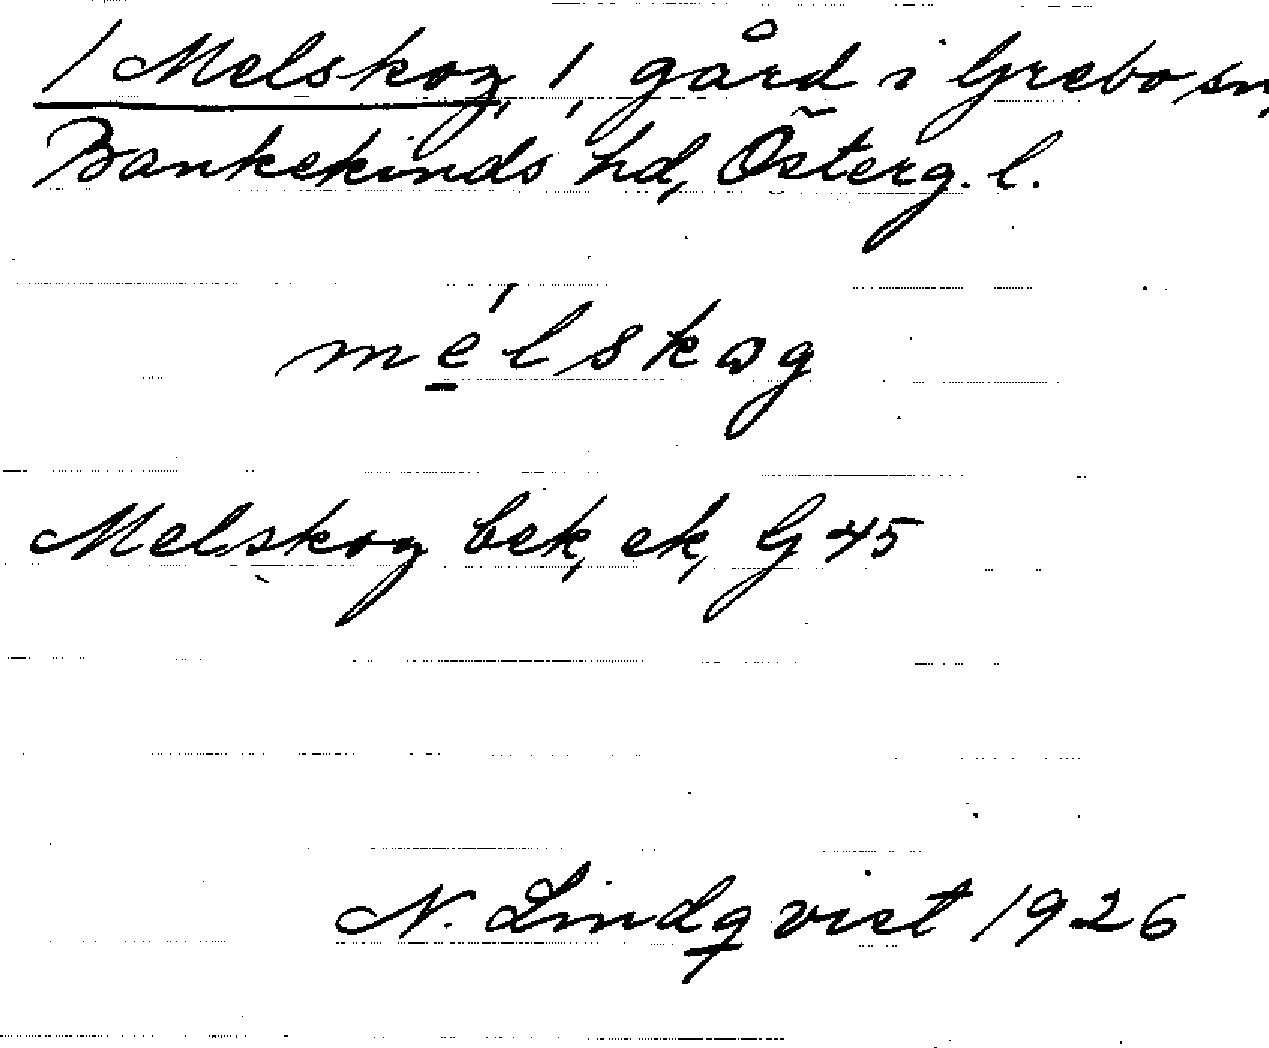 / Melskog, /, gård i Grebo sn,
Bankekinds hd, Österg. l.
mélskog
Melskog bek, ek, G 45
N. Lindqvist 1926